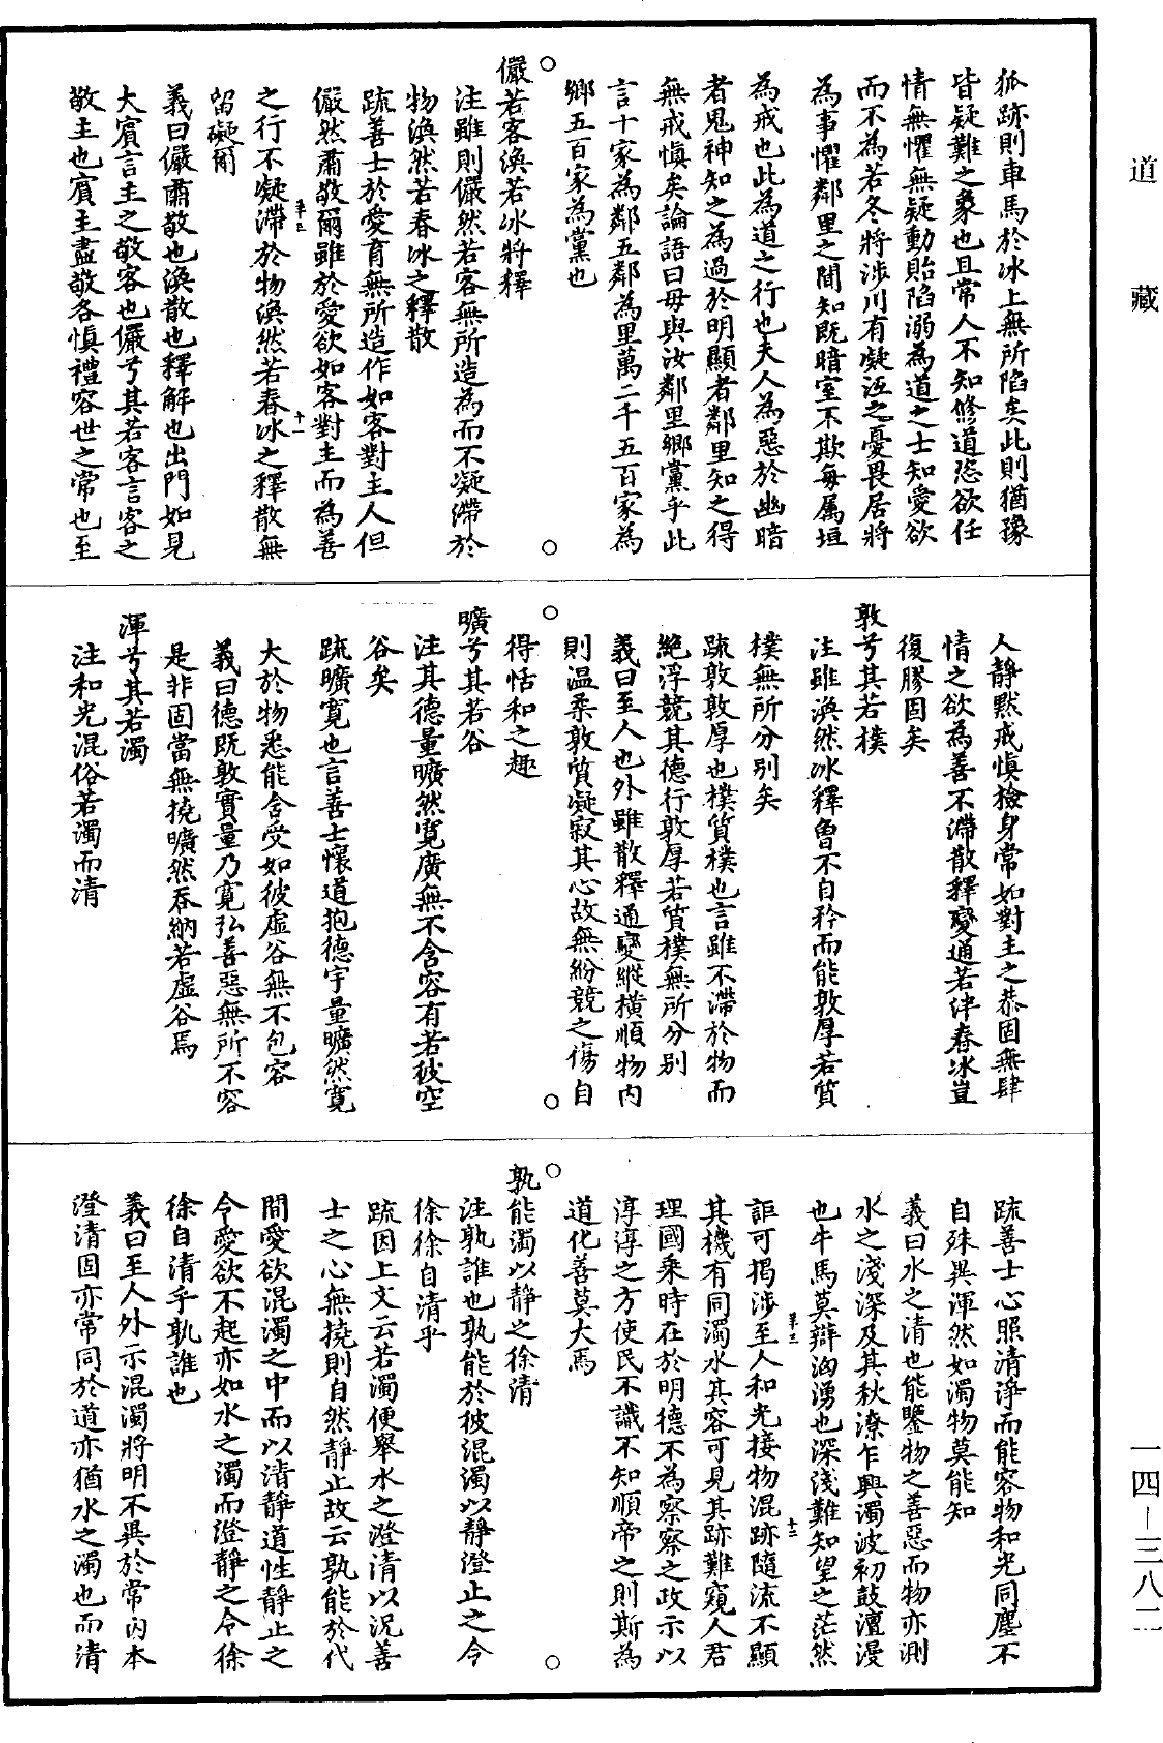 道藏
狐跡則車馬於冰上無所陷矣此則猶豫
皆疑難之象也且常人不知修道恣欲任
情無懼無疑動貽陷溺為道之士知愛欲
而不為若冬將涉川有凝沍之憂畏居將
為事懼鄰里之間知既暗室不欺每属垣
為戒也此為道之行也夫人為惡於幽暗
者鬼神知之為過於明顯者鄰里知之得
無戒慎矣論語曰毋與汝鄰里鄉黨乎此
言十家為鄰五鄰為里萬二千五百家為
鄉五百家為黨也
儼若客渙若冰將釋
注雖則儼然若客無所造為而不凝滯於
物渙然若春冰之釋散
疏善士於愛育無所造作如客對主人但
儼然肅敬爾雖於愛欲如客對主而為善
之行不凝滯於物渙然若春冰之釋散無
留礙爾
義曰儼肅敬也渙散也釋解也出門如見
大賓言主之敬客也儼兮其若客言客之
敬主也賓主盡敬各慎禮容世之常也至
人靜默戒慎撿身常如對主之恭固無肆
情之欲為善不滯散釋變通若伴春冰豈
復膠固矣
敦兮其若樸
注雖渙然冰釋魯不自矜而能敦厚若質
樸無所分別矣
疏敦敦厚也樸質樸也言雖不滯於物而
絕浮競其德行敦厚若質樸無所分別
義曰至人也外雖散釋通變縱橫順物內
則温柔敦質凝寂其心故無紛競之傷自
得恬和之趣
曠兮其若谷
注其德量曠然寬廣無不含容有若彼空
谷矣
疏曠寬也言善士懷道抱德宇量曠然寬
大於物悉能含受如彼虛谷無不包容
義曰德既敦實量乃寬弘善惡無所不容
是非固當無撓曠然吞納若虛谷焉
渾兮其若濁
注和光混俗若濁而清
疏善士心照清淨而能容物和光同塵不
自殊異渾然如濁物莫能知
義曰水之清也能鑒物之善惡而物亦測
水之淺深及其秋潦乍興濁波初鼓澶漫
也牛馬莫辯洶湧也深淺難知望之茫然
詎可揭涉至人和光接物混跡隨流不顯
其機有同濁水其容可見其跡難窺人君
理國乘時在於明德不為察察之政示以
淳淳之方使民不識不知順帝之則斯為
道化善莫大焉
孰能濁以靜之徐清
注孰誰也孰能於彼混濁以靜澄止之令
徐徐自清乎
疏因上文云若濁便舉水之澄清以況善
士之心無撓則自然靜止故云孰能於代
間愛欲混濁之中而以清靜道性靜止之
令愛欲不起亦如水之濁而澄靜之令徐
徐自清乎孰誰也
義曰至人外示混濁將明不異於常內本
澄清固亦常同於道亦猶水之濁也而清
一四—三八二